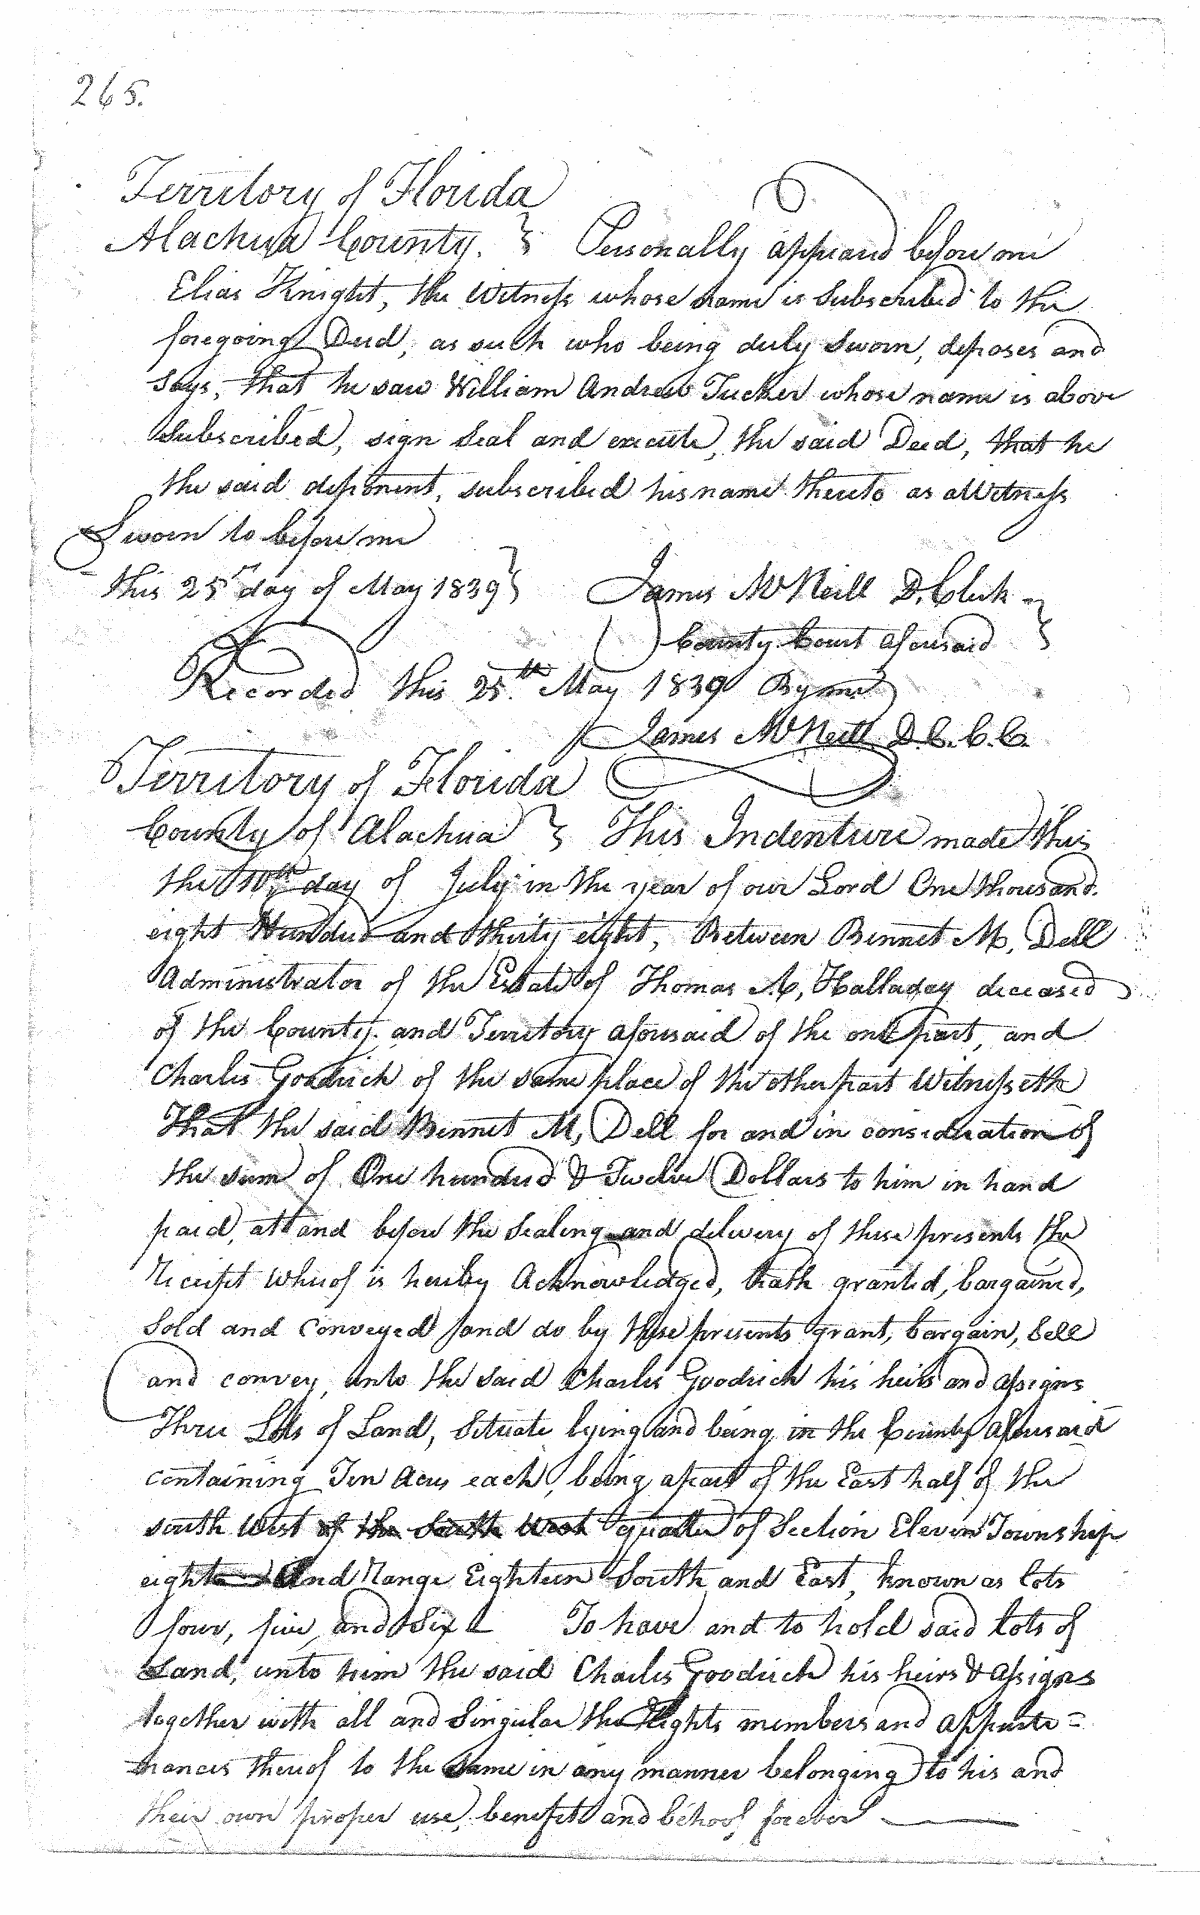 265.
Territory of Florida
Alachua County. } Personally appeared before me
Elias Knight, the Witness whose name is Subscribed to the
foregoing Deed, as such who being duly Sworn, deposes and
says, that he saw William Andrew Tucker whose name is above
Subscribed, sign Seal and execute, the said Deed, that he
the said deponent, subscribed his name thereto as a Witness
Sworn to before me
this 25th day of May 1839 } James McNeill D. Clerk
County Court aforesaid }
Recorded this 25th May 1839 By me
James McNeill D.C.C.C.
Territory of Florida
County of Alachua } This Indenture made this
the 10th day of July in the year of our Lord One thousand
eight Hundred and thirty eight, Between Bennet M, Dell
Administrator of the Estate of Thomas A, Halladay deceased
of the County and Territory aforesaid of the one part, and
Charles Goodrich of the same place of the other part Witnesseth
That the said Bennet M, Dell for and in consideration of
the sum of One hundred & Twelve Dollars to him in hand
paid, at and before the Sealing and delivery of these presents the
Receipt Whereof is hereby Acknowledged, hath granted, bargained,
Sold and conveyed and do by these presents grant, bargain, Sell
and convey, unto the said Charles Goodrich his heirs and assigns
Three Lots of Land, Situate lying and being in the County aforesaid
containing Ten Acres each, being a part of the East half of the
south West of the South West quarter of Section Eleven Township
eight And Range Eighteen South and East, known as lots
four, five, and Six To have and to hold said Lots of
Land, unto him the said Charles Goodrich his heirs & assigns
together with all and Singular the Rights members and appurte=
nances thereof to the same in any manner belonging to his and
their own proper use, benefit and behoof forever